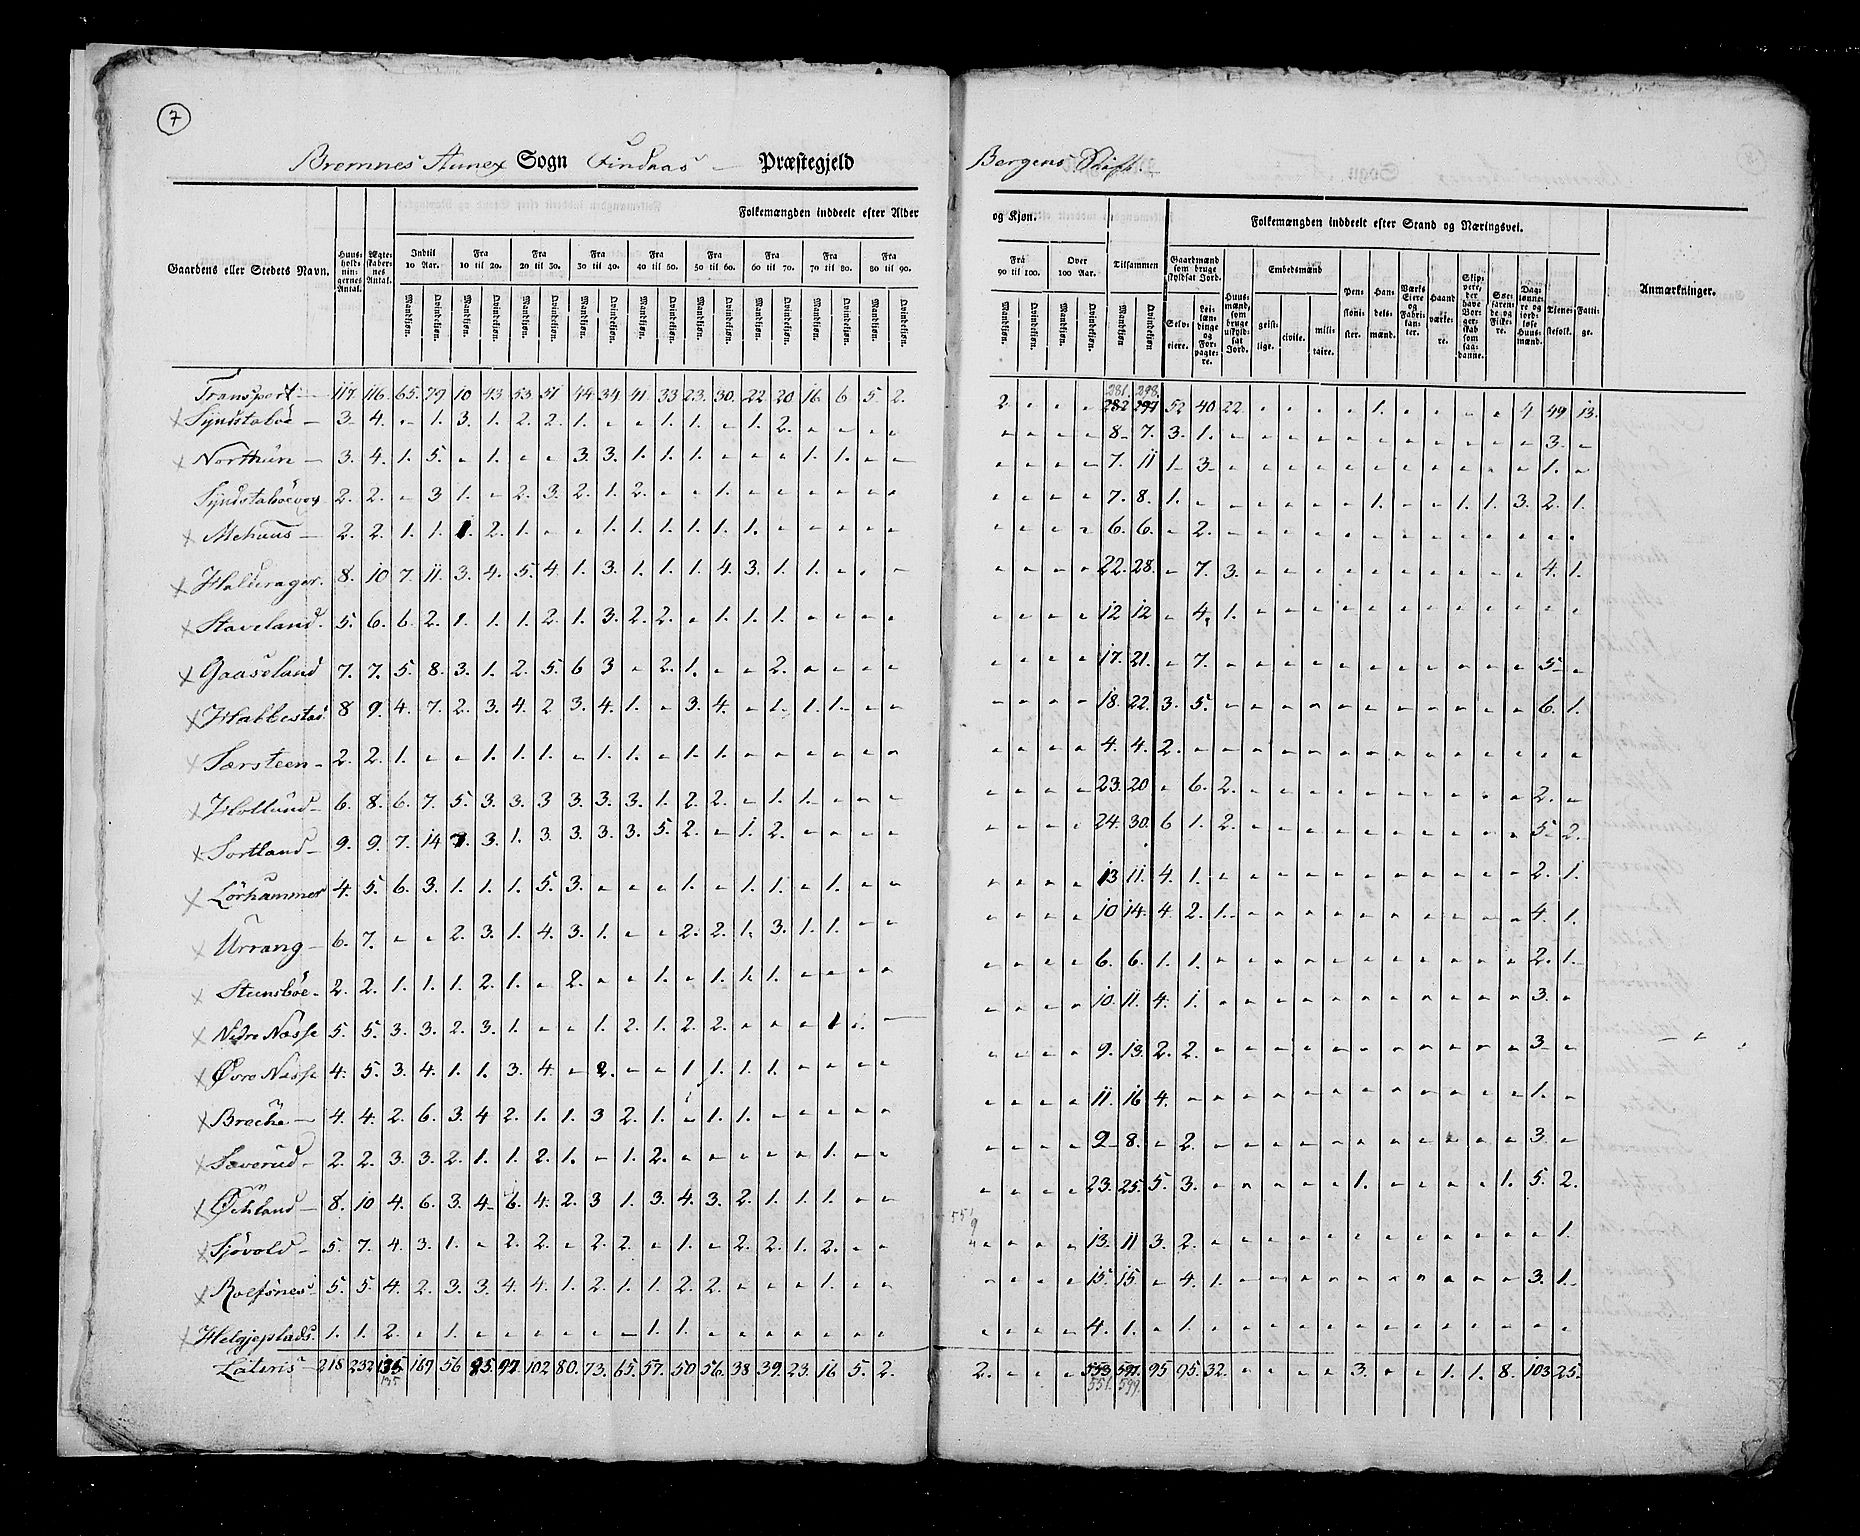 7
Bremnes Annex Sogn Findaas Præstegjeld Bergens Stift.
Folkemængden inddeelt efter Alder og Kjøn. Folkemængden inddeelt efter Stand og Næringsvei.
Gaardens eller Stedets Navn. Huus-holdnin-gernes Antal. Ægte-skaber-nes Antal. Indtil 10 Aar. Fra 10 til 20. Fra 20 til 30. Fra 30 til 40. Fra 40 til 50. Fra 50 til 60. Fra 60 til 70. Fra 70 til 80. Fra 80 til 90. Fra 90 til 100. Over 100 Aar. Tilsammen Gaardmænd som bruge skyldsat Jord. Huus-mænd, som bruge uskyld-sat Jord. Embedsmænd Pen-sioni-ster. Han-dels-mænd. Værks Eiere og Fabri-kan-ter. Haand værke-re. Skip-pere, der have Bor-gerskab som saa-danne. Søe-faren-de og Fiske-re. Dag-lønne-re og jord-løse Huus-mænd. Tiene-stefolk. Fatti-ge. Anmærkninger.
Mandkjøn. Qvindekjøn. Selv-eiere. Lei-læn-dinge og For-pagte-re. geist-lige. civile. mili-taire.
Transport 117. 116. 65. 79 10 43. 53. 51 44 34 41. 33 23. 30. 22 20 16. 6. 5. 2. 2. 281. 298. 282 297 52 40 22 1. 4 49 13.
Syndstabøe 3. 4. 1. 3. 1. 2. 2. 1. 1. 1. 1. 2. 8. 7. 3. 1. 3.
Northun 3. 4. 1. 5. 1. 3. 3. 1. 1. 1. 1. 1. 7. 11 1. 3. 1.
Syndstabøevog 2. 2. 3 1. 2. 3. 2. 1. 2. 1. 7. 8. 1. 1. 1. 1. 3. 2. 1.
Mehuus 2. 2. 1. 1. 1. 2. 1. 1. 1. 1. 1. 1. 1. 6. 6. 2.
Halderager 8. 10 7. 11. 3. 4. 5. 4. 1. 3. 1. 1. 1. 4. 3. 1. 1. 22. 28. 7. 3. 4. 1.
Staveland 5. 6. 6. 2. 1. 1. 1. 2. 1. 3. 2. 2. 1. 1. 1. 12 12 4. 1.
Gaaseland 7. 7. 5. 8. 3. 1. 2. 5. 6 3 2. 1. 2. 17. 21. 7. 5.
Hallestad 8 9. 4. 7. 2. 3. 4. 2 3. 4. 1. 3. 4. 1. 1. 1. 18. 22. 3. 5. 6. 1.
Særsteen 2. 2. 1. 1. 1. 1. 1. 1. 1. 1. 4. 4. 2.
Hollund 6. 8. 6. 7. 5. 3. 3. 3 3. 3. 3. 1. 2. 2. 1. 1. 23. 20 6. 2. 2.
Sortland 9. 9. 7. 14 7. 3. 1. 3 3. 3. 3. 5. 2. 1. 2. 24. 30. 6 1. 2. 5. 2.
Lörhammer 4. 5. 6. 3. 1. 1. 1. 5. 3. 1. 1. 1. 1. 13 11. 4. 1. 2. 1.
Urrang 6. 7. 2. 3. 1. 4. 3. 1. 2. 2. 1. 3. 1. 1. 10 14. 4. 2. 1. 4. 1.
Steensbøe 2. 2. 1. 1. 1. 2. 1. 2. 1. 1. 1. 1. 6. 6. 1. 1. 2. 1.
Nedre Næsse 5. 5. 3. 3. 2. 3. 1. 1. 2. 1. 2. 2. 1 1. 10. 11. 4. 1. 3.
Øvre Næsse 4. 5. 3. 4. 1. 1. 3. 4. 2. 1 1. 1. 1. 9. 13. 2. 2. 3.
Breche 4. 4. 2. 6. 3. 4 2. 1. 1. 3 2. 1. 1. 1. 11. 16 4. 1.
Sæverud 2. 2. 3. 3. 2. 1. 1. 2. 1. 1. 2. 1. 9 8. 2. 3.
Øchland 8. 10 4. 6. 3. 4 6. 4. 2. 3 1. 3. 4. 3. 2. 1. 1. 1. 23. 25. 5. 3. 1. 1. 5. 2.
Sjøvold 5. 7. 4. 3. 1. 2. 2. 2. 2. 1. 2. 2. 1. 2. 13. 11 3. 2. 1.
Rolfsnes 5. 5. 4. 2. 3. 3. 4 4. 1. 2. 1. 1. 2. 2. 1. 15. 15. 4. 1. 3. 1.
Helgjeplads 1. 1. 2. 1. 1. 1. 4. 1. 1.
Lateris 218 232 135 169 56 85 97. 102 80. 73. 65. 57. 50 56. 38. 39. 23. 16 5. 2. 2. 553 597. 95 95. 32. 3. 1. 1. 8. 103 25.
135 551. 599